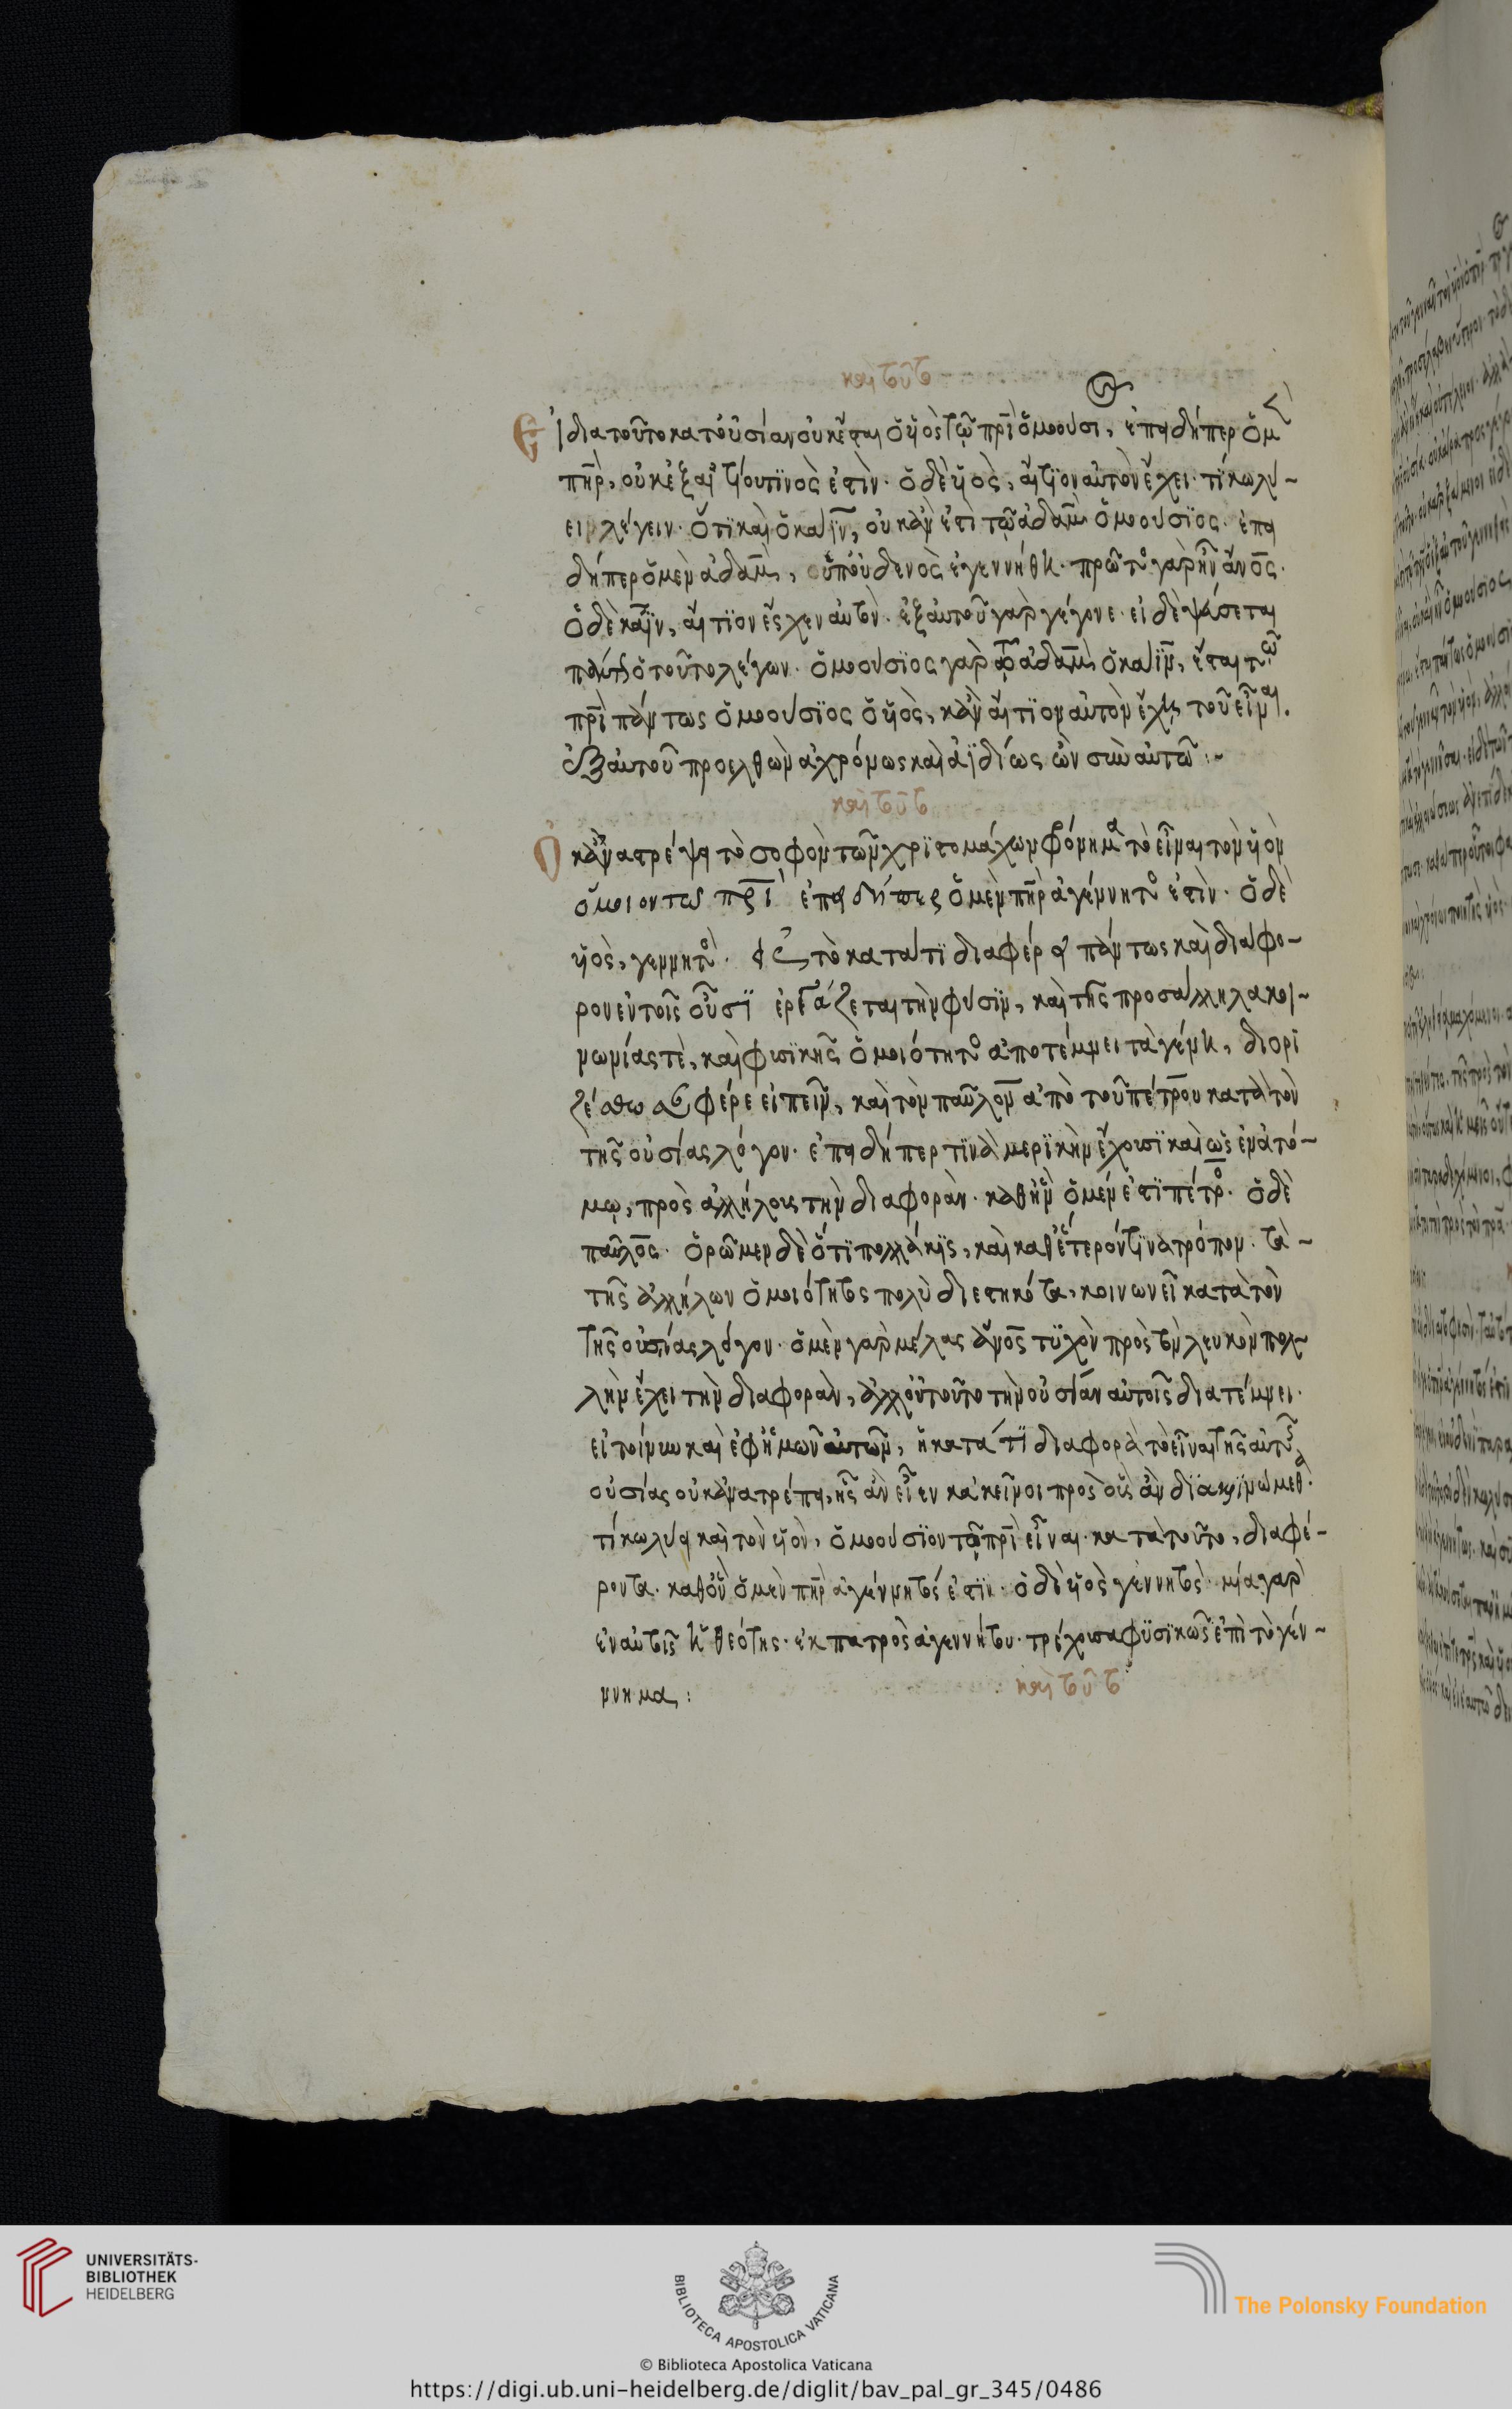 καὶ τοῦτο
Εἰ διατοῦτο κατ' οὐσίαν οὐκ ἔσται ὁ υἱὸς τῷ πρὶ ὁμοούσι, ἐπειδήπερ ὁ μ
πηρ, οὐκ ἐξ αἰτίου τινὸς ἐστὶν. ὁ δὲ υἱὸς, αἴτιον αὐτὸν ἔχει. τί κωλύ~
ει λέγειν. ὅτι καὶ ὁ καϊν, οὐκ ἂν ἐστὶ τῷ ἀδὰμ ὁμοούσιος. ἐπει
δήπερ ὁ μὲν ἀδὰμ, ὑπ' οὐδενὸς ἐγεννήθη. πρῶτος γὰρ ἦν ἄνος.
ὁ δὲ κάϊν, αἴτιον ἔσχεν αὐτὸν. ἐξ αὐτοῦ γὰρ γέγονε. εἰ δὲ ψεύσεται
πάντως ὁ τοῦτο λέγων. ὁμοούσιος γὰρ τῷ ἀδὰμ ὁ καϊν, ἔσται τῷ
πρὶ πάντως ὁμοούσιος ὁ υἱὸς, κἂν αἴτιον αὐτὸν ἔχῃ τοῦ εἶναι.
ἐξ αὐτοῦ προελθὼν ἀχρόνως καὶ ἀϊδίως ὢν σὺν αὐτῶ :~
καὶ τοῦτο
Οὐκ ἀνατρέψει τὸ σοφὸν τῶν χριστομάχων φρόνημα τὸ εἶναι τὸν υἱὸν
ὅμοιον τῷ πρὶ ἐπειδήπερ ὁ μὲν πηρ ἀγέννητος ἐστὶν. ὁ δὲ
υἱὸς, γεννητός. τὸ κατά τι διαφέρειν πάντως καὶ διάφο~
ρον ἐν τοῖς οὖσι ἐργάζεται τὴν φύσιν, καὶ τῆς πρὸς ἄλληλα κοι~
νωνίας τὲ, καὶ φυσικῆς ὁμοιότητος ἀποτέμνει τὰ γένη, διορι
ζέσθω φέρε εἰπεῖν, καὶ τὸν παῦλον ἀπὸ τοῦ πέτρου κατὰ τὸν
τῆς οὐσίας λόγον. ἐπειδήπερ τινὰ μερικὴν ἔχουσι καὶ ὡς ἐν ἀτό~
μῳ, πρὸς ἀλλήλους τὴν διαφορὰν. καθ' ἣν ὁ μέν ἐστι πέτρος. ὁ δὲ
παῦλος. ὁρῶμεν δὲ ὅτι πολλάκις, καὶ καθ' ἕτερόν τινα τρόπον. τὰ~
τῆς ἀλλήλων ὁμοιότητος πολὺ διεστηκότα, κοινωνεῖ κατὰ τὸν
τῆς οὐσίας λόγον. ὁ μὲν γὰρ μέλας ἄνος τυχὸν πρὸς τὸν λευκὸν πολ~
λὴν ἔχει τὴν διαφορὰν, ἀλλ' οὐ τοῦτο τὴν οὐσίαν αὐτοῖς διατέμνει.
εἰ τοίνυν καὶ ἐφ' ἡμῶν αὐτῶν, ἡ κατά τι διαφορὰ τὸ εἶναι τῆς αὐτῆς
οὐσίας οὐκ ἀνατρέπει, ἧς ἂν εἶεν κἀκεῖνοι πρὸς οὓς ἂν διακρινώμεθα.
τί κωλύει καὶ τὸν υἱὸν, ὁμοούσιον τῷ πρὶ εἶναι. κατὰ τοῦτο, διαφέ~
ροντα. καθ' ὃν ὁ μὲν πηρ ἀγέννητός ἐστιν. ὁ δὲ υἱὸς γεννητὸς. μία γὰρ
ἐν αὐτοῖς ἡ θεότης. ἐκ πατρὸς ἀγεννήτου. τρέχουσα φυσικῶς ἐπὶ τὸ γέν~
νημα :
καὶ τοῦτο
UNIVERSITÄTS-
BIBLIOTHEK
HEIDELBERG
BIBLIOTECA APOSTOLICA VATICANA
The Polonsky Foundation
© Biblioteca Apostolica Vaticana
https://digi.ub.uni-heidelberg.de/diglit/bav_pal_gr_345/0486